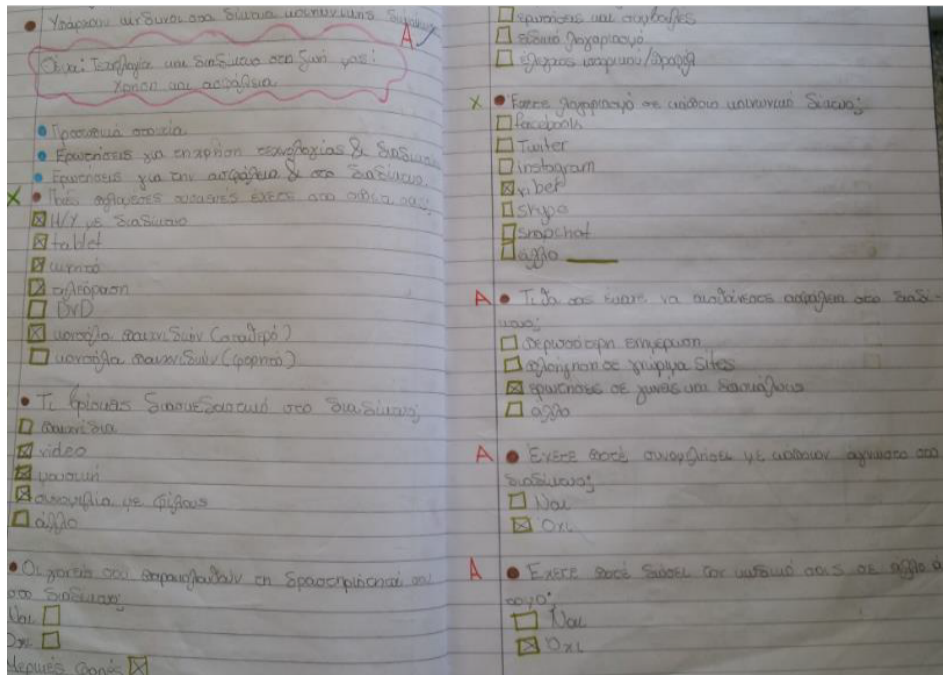 Υπάρχουν κίνδυνοι στα δίκτυα κοινωνικής
Α
Θέμα: Τεχνολογία και διαδίκτυο στη ζωή μας:
Χρήση και ασφάλεια
Προσωπικά στοιχεία
Ερωτήσεις για τη χρήση τεχνολογίας &
Ερωτήσεις για την ασφάλεια & στο διαδίκτυο.
Χ
συσκευές έχεις στο σπίτι σας;
Η/Υ με διαδίκτυο
tablet
κινητό
τηλεόραση
DVD
κονσόλα παιχνιδιών (σταθερό)
κονσόλα παιχνιδιών (φορητό)
Τι βρίσκεις διασκεδαστικό στο διαδίκτυο;
παιχνίδια
video
μουσική
συνομιλία με φίλους
άλλο
Οι γονείς σου παρακολουθούν τη δραστηριότητά σου
στο διαδίκτυο;
Ναι
Όχι
Μερικές φορές
ερωτήσεις και συμβουλές
ειδικό λογαριασμό
έλεγχος ιστορικού/
Χ Έχετε λογαριασμό σε κάποιο κοινωνικό δίκτυο;
facebook
Twiter
instagram
viber
skype
snapchat
άλλο
Α Τι θα σας έκανε να αισθάνεστε ασφάλεια στο διαδί-
κτυο;
περισσότερη ενημέρωση
πλοήγηση σε γνώριμα sites
ερωτήσεις σε γονείς και δασκάλους
άλλο
Α Έχετε ποτέ συνομιλήσει με κάποιον άγνωστο στο
διαδίκτυο;
Ναι
Όχι
Α Έχετε ποτέ δώσει τον κωδικό σας σε άλλο ά
Ναι
Όχι